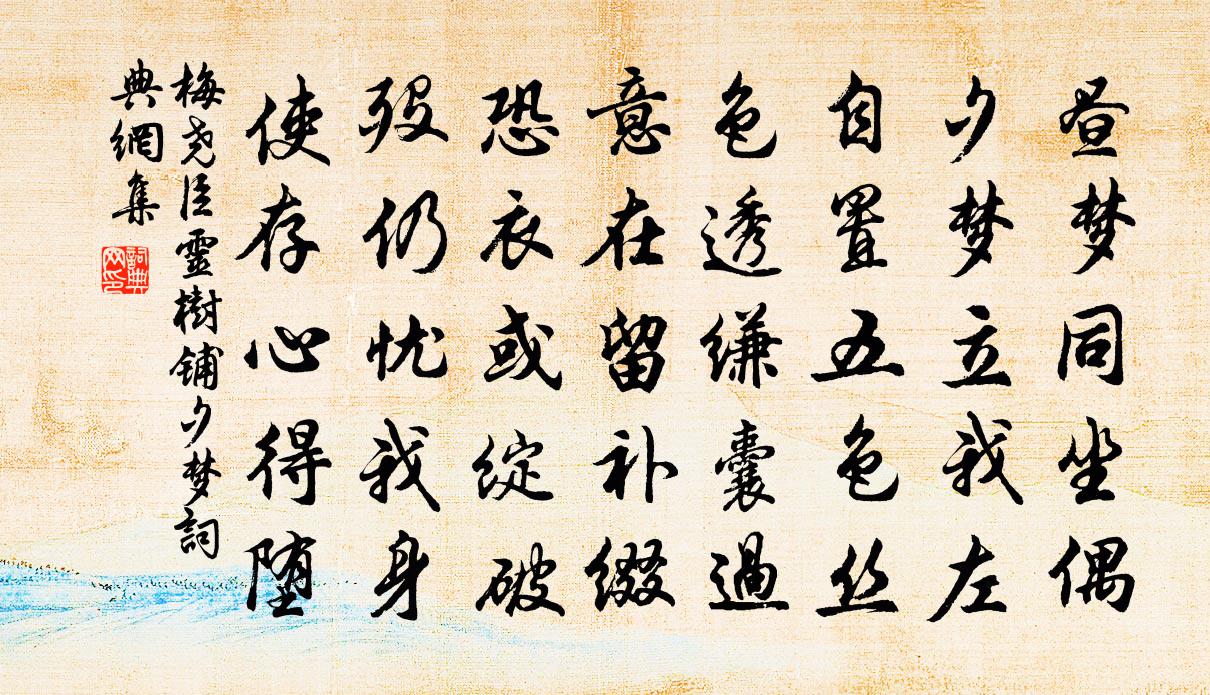 昼梦同坐偶
夕梦立我左
自置五色丝
色透缣囊過
意在留补缀
恐衣或绽破
殁仍忧我身
使存心得堕
梅尧臣靈樹鋪夕梦詞
典網集
詞典
网印